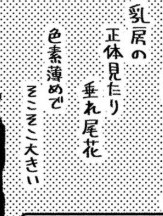 乳尻の
正体見たり
垂れ尾花
色素薄めで
そこそこ大きい